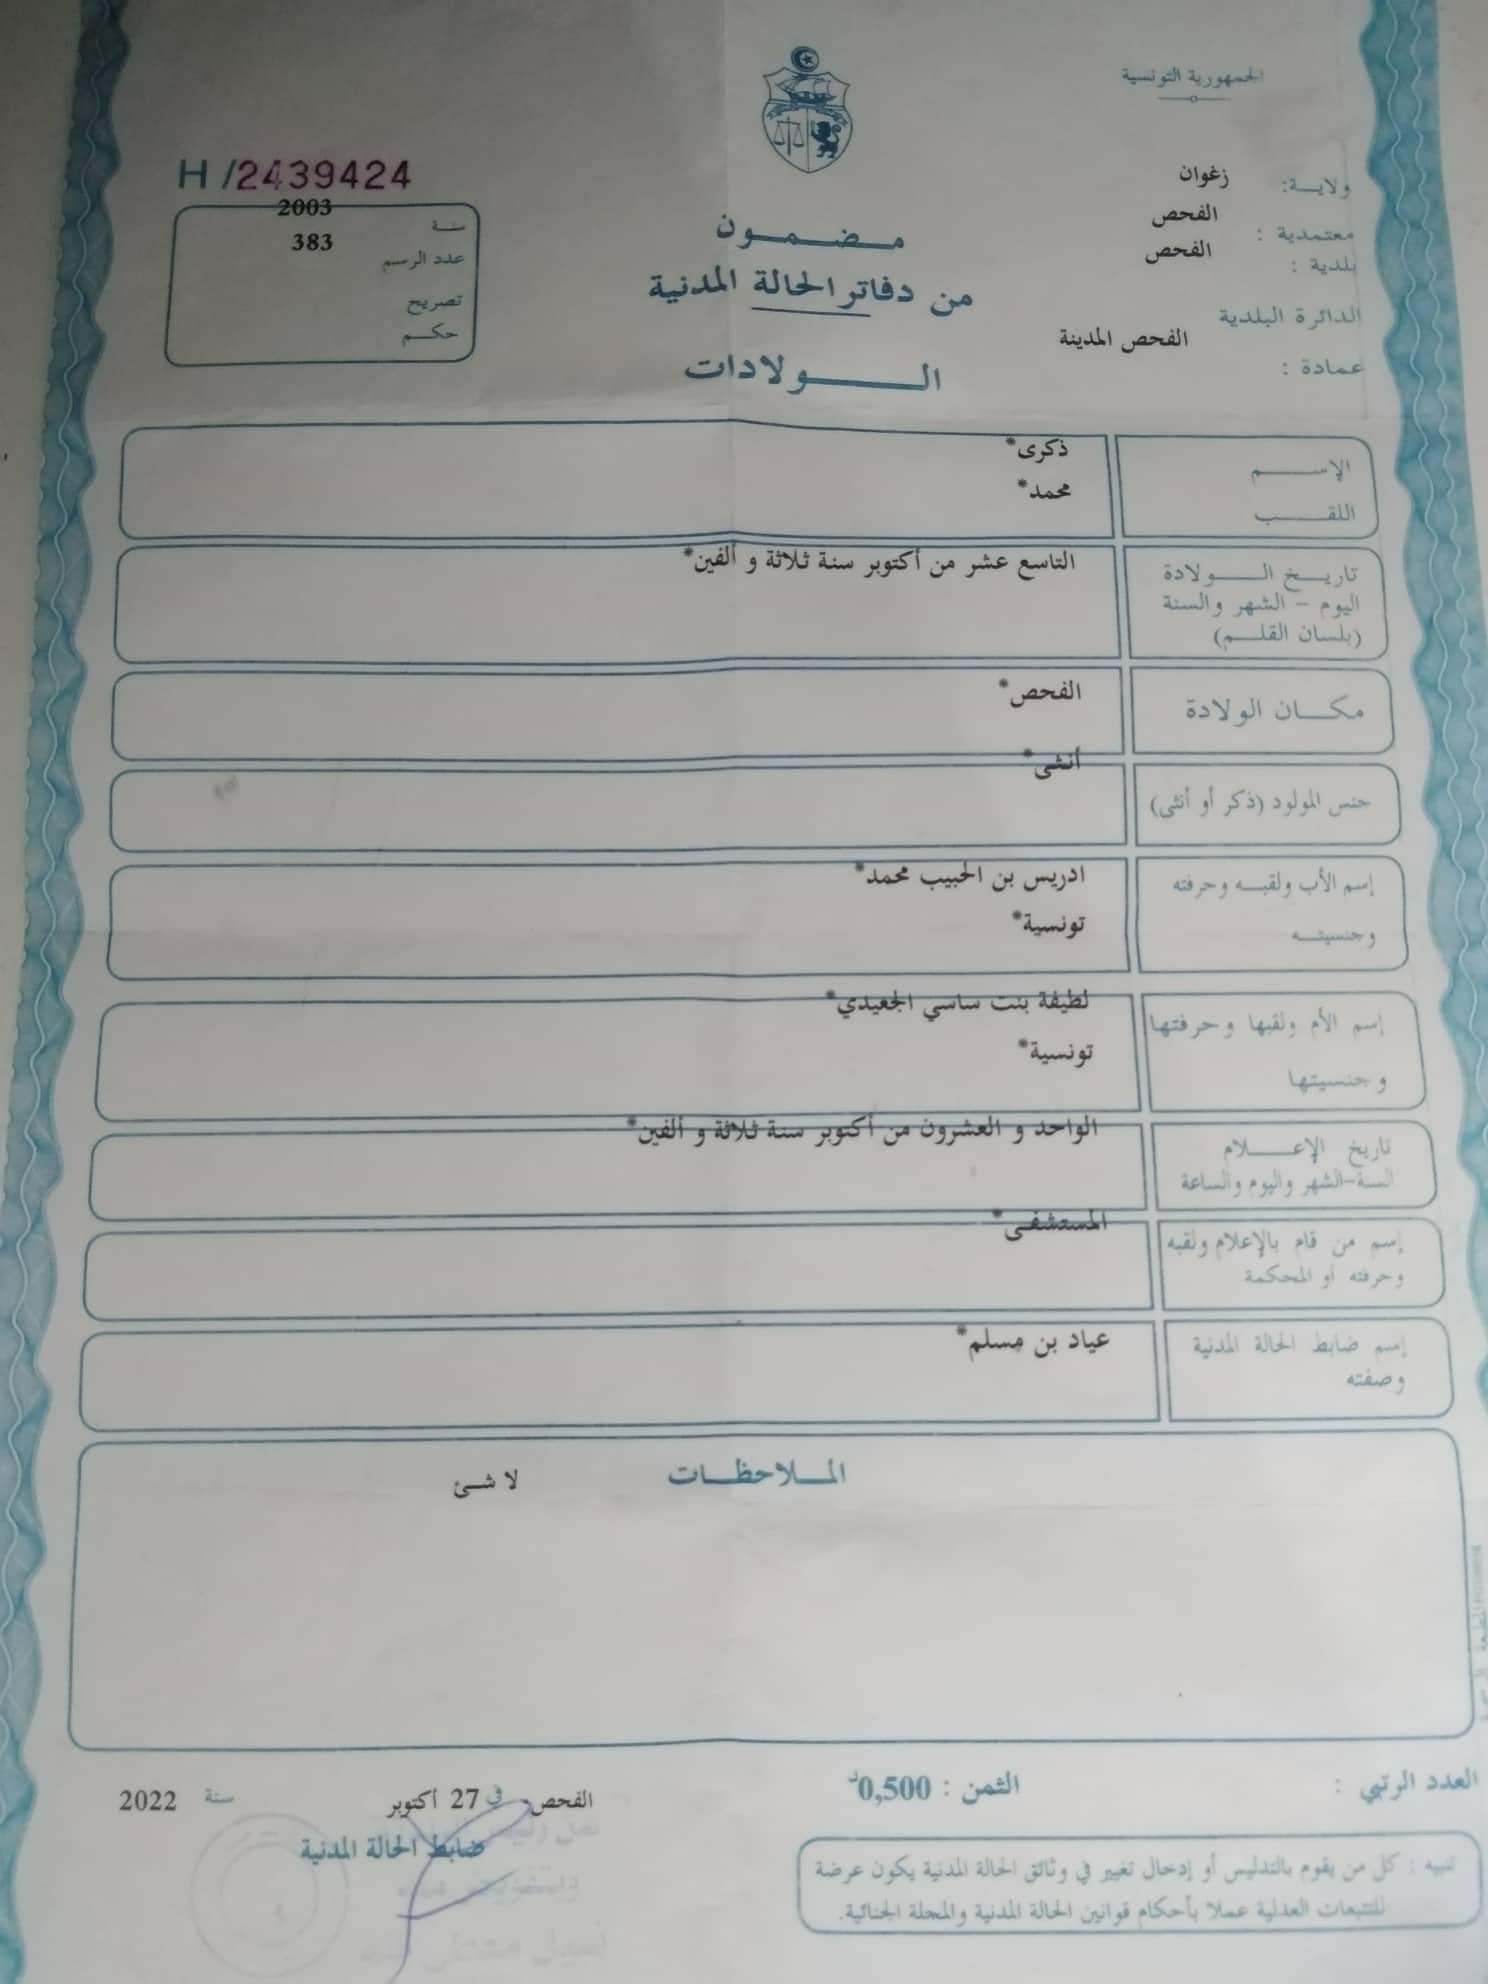 الجمهورية التونسية
ولايـــة: زغوان
معتمدية : الفحص
بلدية : الفحص
الدائرة البلدية
عمادة : الفحص المدينة
مـــضـــمـــون
من دفاتر الحالة المدنية
الـــــولادات
H /2439424
سنـة 2003
عدد الرسم 383
تصريح
حكـــم
الإســـــم ذكرى*
اللقـــــب محمد*
تاريـــخ الـــــولادة التاسع عشر من أكتوبر سنة ثلاثة و ألفين*
اليوم - الشهر والسنة
(بلسان القلـــم)
مكـــان الولادة الفحص*
جنس المولود (ذكر أو أنثى) أنثى*
إسم الأب ولقبـــه وحرفته ادريس بن الحبيب محمد*
وجنسيتـــه تونسية*
إسم الأم ولقبها وحرفتها لطيفة بنت ساسي الجعيدي*
وجنسيتها تونسية*
تاريخ الإعـــــلام الواحد و العشرون من أكتوبر سنة ثلاثة و ألفين*
السنة-الشهر واليوم والساعة
إسم من قام بالإعلام ولقبه المستشفى*
وحرفته أو المحكمة
إسم ضابط الحالة المدنية عياد بن مسلم*
وصفته
المـــلاحظـــات
لا شـئ
العدد الرتبي :
الثمن : 0,500د
الفحص في 27 أكتوبر سنة 2022
ضابط الحالة المدنية
تنبيه : كل من يقوم بالتدليس أو إدخال تغيير في وثائق الحالة المدنية يكون عرضة
للتتبعات العدلية عملا بأحكام قوانين الحالة المدنية والمجلة الجنائية.